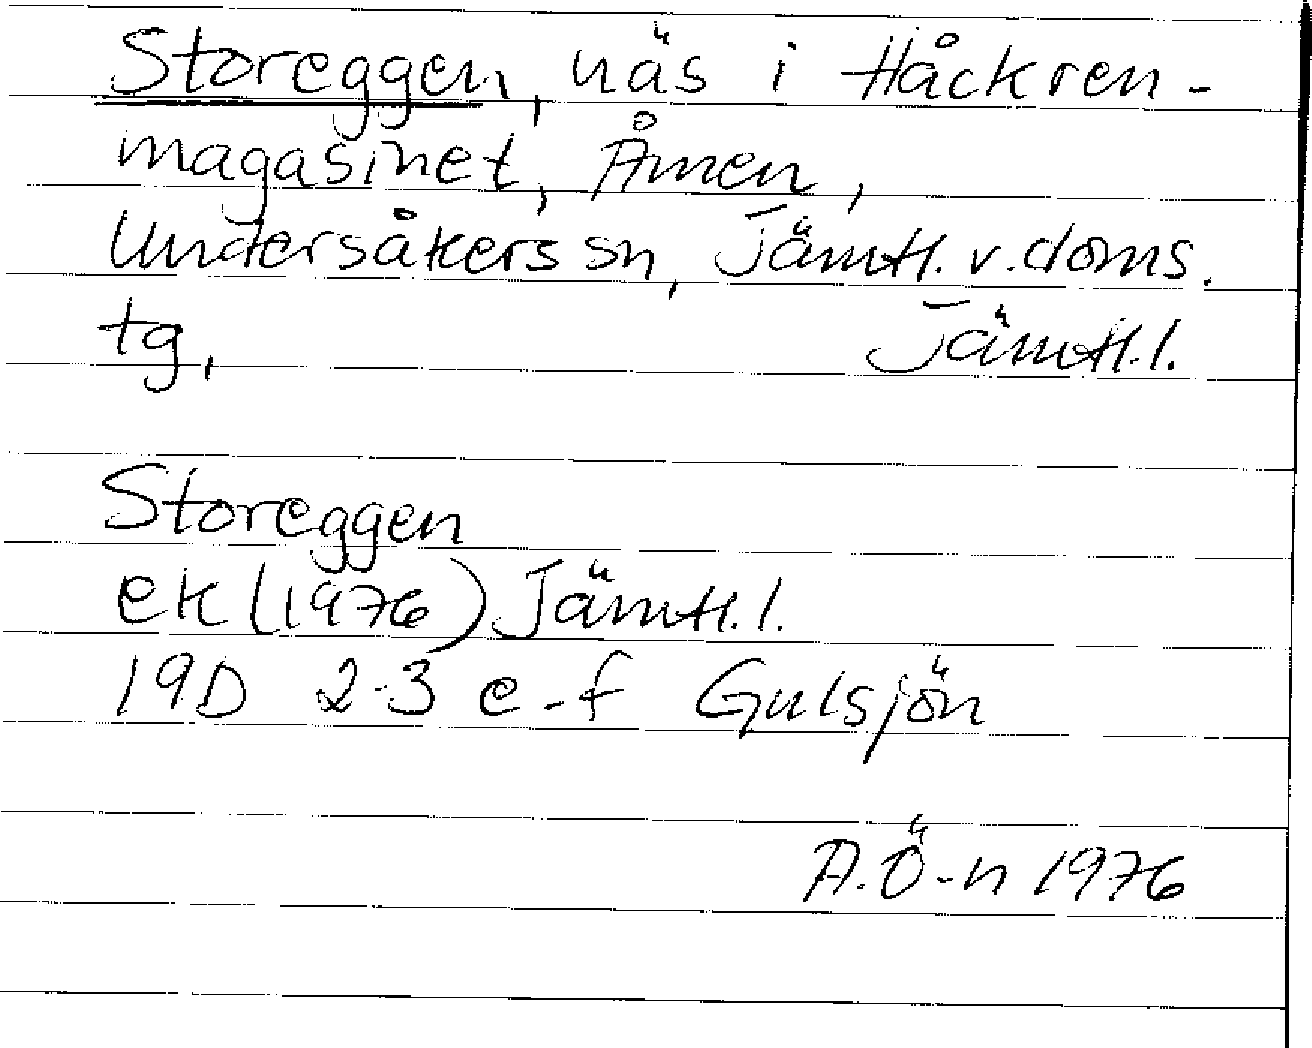 Storeggen, näs i Håckren-
magasinet, Åmen,
Undersåkers sn, Jämtl. v. doms.
tg, Jämtl. l.
Storeggen
ek (1976) Jämtl. l.
19D 2-3 e-f Gulsjön
A. Ö-n 1976